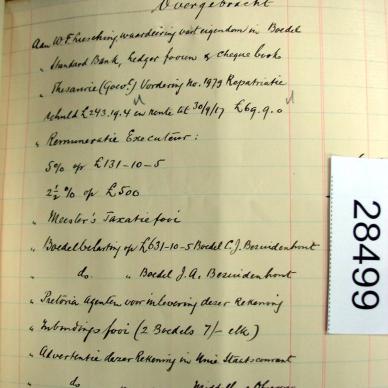 Overgebracht
Aan W. F. Hiesching waardeering vast eigendom in Boedel
" Standard Bank, Ledger fooien & cheque boek
" Thesaurie (Govt.) Vordering No. 1979 Repatriatie
schuld £243.19.4 en rente tot 30/9/17 £69.9.0
" Remuneratie Executeur:
5% op £131-10-5
2½% op £500
" Meester's Taxatie fooi
" Boedelbelasting op £631-10-5 Boedel C. J. Bezuidenhout
do. " Boedel J. A. Bezuidenhout
" Pretoria Agenten voor inlevering dezer Rekening
" Inbindings fooi (2 Boedels 7/- elk)
" Advertentie dezer Rekening in Unie Staatscourant
do "
28499